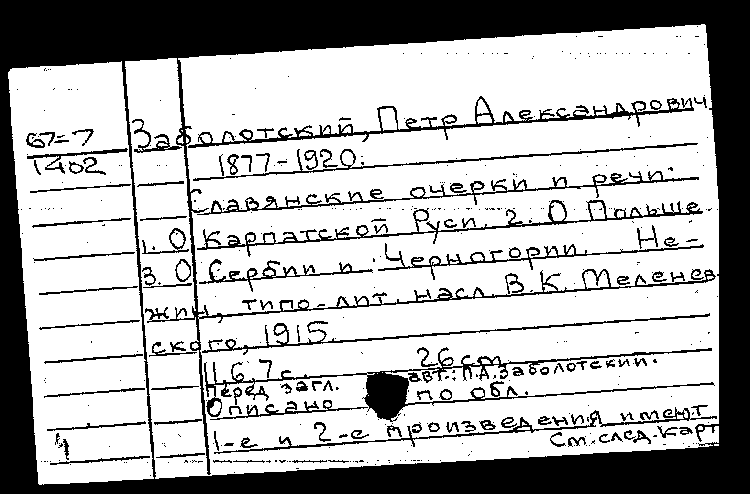 67=7
1402
Заболотский, Петр Александрович.
1877-1920.
Славянские очерки и речи:
1. О Карпатской Руси. 2. О Польше.
3. О Сербии и Черногории. Не-
жин, типо-лит. насл. В.К. Меленев-
ского, 1915.
11,6,7 с. 26 cm.
Перед загл. авт.: П.А. Заболотский.
Описано по обл.
1-е и 2-е произведения имеют
См. след. карт
4